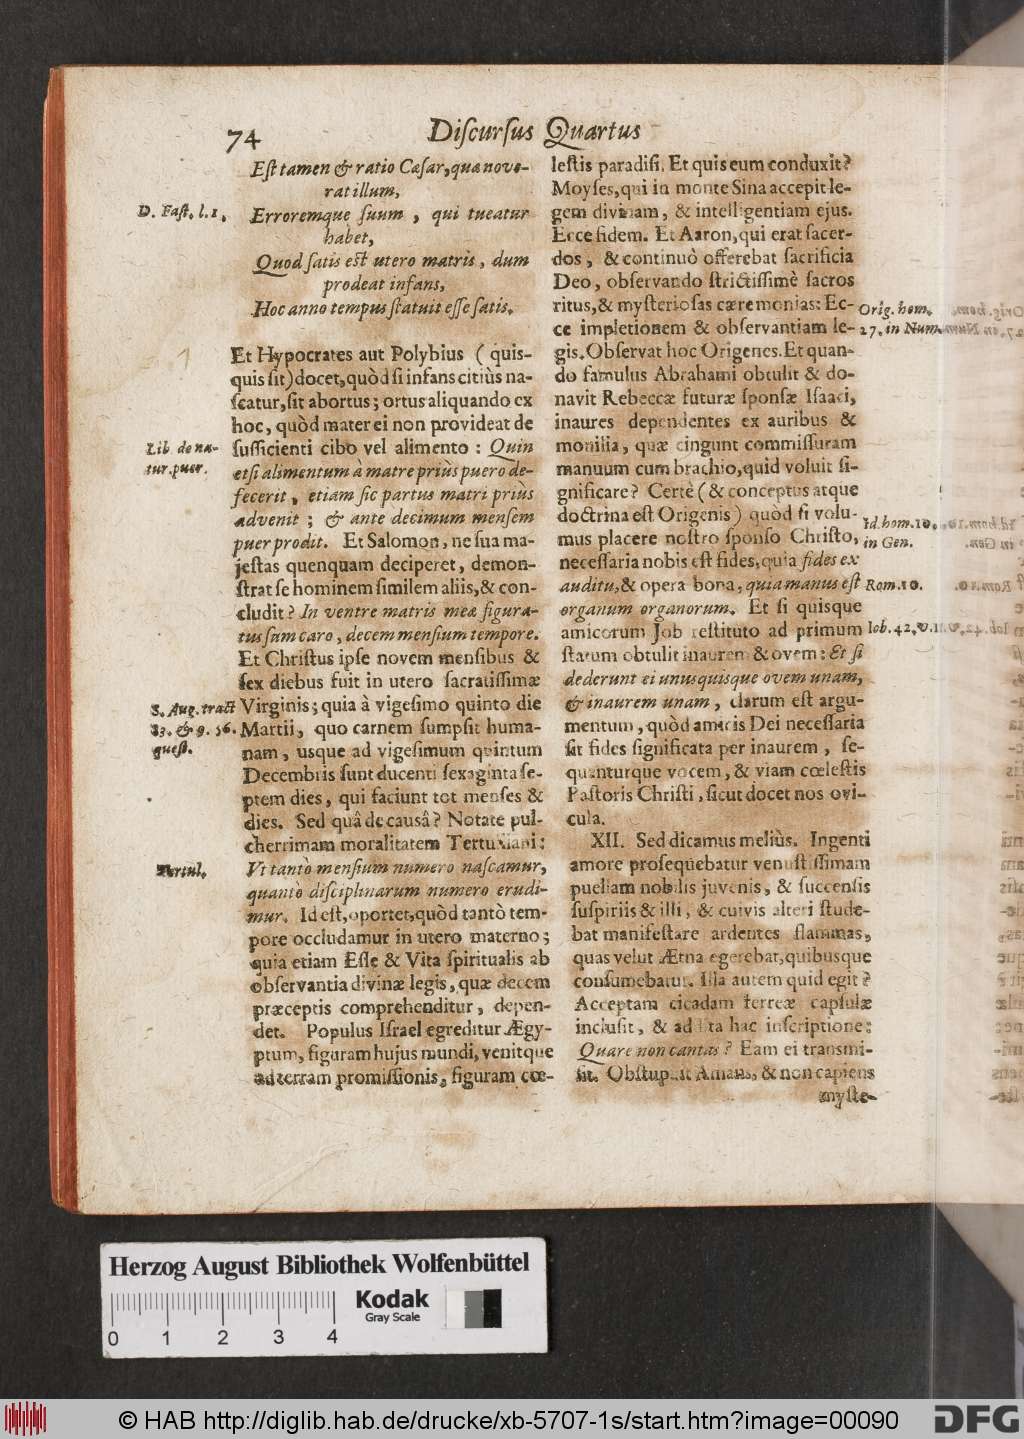 74
Discursus Quartus
Est tamen & ratio Cæsar, qua nove-
rat illum,
D. Fast. l. 1.
Erroremque suum, qui tueatur
habet,
Quod satis est utero matris, dum
prodeat infans,
Hoc anno tempus statuit esse satis.
Et Hypocrates aut Polybius (quis-
quis sit) docet, quòd si infans citiùs na-
scatur, sit abortus; ortus aliquando ex
hoc, quòd mater ei non provideat de
Lib. de na-
tur. puer.
sufficienti cibo vel alimento: Quin
etsi alimentum à matre priùs puero de-
fecerit, etiam sic partus matri priùs
advenit; & ante decimum mensem
puer prodit. Et Salomon, ne sua ma-
jestas quenquam deciperet, demon-
strat se hominem similem aliis, & con-
cludit? In ventre matris meæ figura-
tus sum caro, decem mensium tempore.
Et Christus ipse novem mensibus &
sex diebus fuit in utero sacratissimæ
S. Aug. tract
83. & q. 56.
quest.
Virginis; quia à vigesimo quinto die
Martii, quo carnem sumpsit huma-
nam, usque ad vigesimum quintum
Decembris sunt ducenti sexaginta se-
ptem dies, qui faciunt tot menses &
dies. Sed quâ de causâ? Notate pul-
cherrimam moralitatem Tertuliani:
Tertul.
Vt tantò mensium numero nascamur,
quantò disciplinarum numero erudi-
mur. Id est, oportet, quòd tantò tem-
pore occludamur in utero materno;
quia etiam Esse & Vita spiritualis ab
observantia divinæ legis, quæ decem
præceptis comprehenditur, depen-
det. Populus Israel egreditur Ægy-
ptum, figuram hujus mundi, venitque
ad terram promissionis, figuram cœ-
lestis paradisi. Et quis eum conduxit?
Moyses, qui in monte Sina accepit le-
gem divinam, & intelligentiam ejus.
Ecce fidem. Et Aaron, qui erat sacer-
dos, & continuò offerebat sacrificia
Deo, observando strictissimè sacros
ritus, & mysteriosas cæremonias: Ec-
ce impletionem & observantiam le-
gis. Observat hoc Origenes. Et quan-
Orig. hom.
27. in Num.
do famulus Abrahami obtulit & do-
navit Rebeccæ futuræ sponsæ Isaaci,
inaures dependentes ex auribus &
monilia, quæ cingunt commissuram
manuum cum brachio, quid voluit si-
gnificare? Certè (& conceptus atque
doctrina est Origenis) quòd si volu-
mus placere nostro sponso Christo,
Id. hom. 10.
in Gen.
necessaria nobis est fides, quia fides ex
auditu, & opera bona, quia manus est
Rom. 10.
organum organorum. Et si quisque
amicorum Job restituto ad primum
Iob. 42. v. 11.
statum obtulit inaurem & ovem: Et
dederunt ei unusquisque ovem unam,
& inaurem unam, clarum est argu-
mentum, quòd amicis Dei necessaria
sit fides significata per inaurem, se-
quanturque vocem, & viam cœlestis
Pastoris Christi, sicut docet nos ovi-
cula.
XII. Sed dicamus meliùs. Ingenti
amore prosequebatur venustissimam
puellam nobilis juvenis, & succensis
suspiriis & illi, & cuivis alteri stude-
bat manifestare ardentes flammas,
quas velut Ætna egerebat, quibusque
consumebatur. Illa autem quid egit?
Acceptam cicadam terreæ capsulæ
inclusit, & addita hac inscriptione:
Quare non cantas? Eam ei transmi-
sit. Obstupuit Amans, & non capiens
myste-
Herzog August Bibliothek Wolfenbüttel
0 1 2 3 4
Kodak
Gray Scale
© HAB http://diglib.hab.de/drucke/xb-5707-1s/start.htm?image=00090
DFG